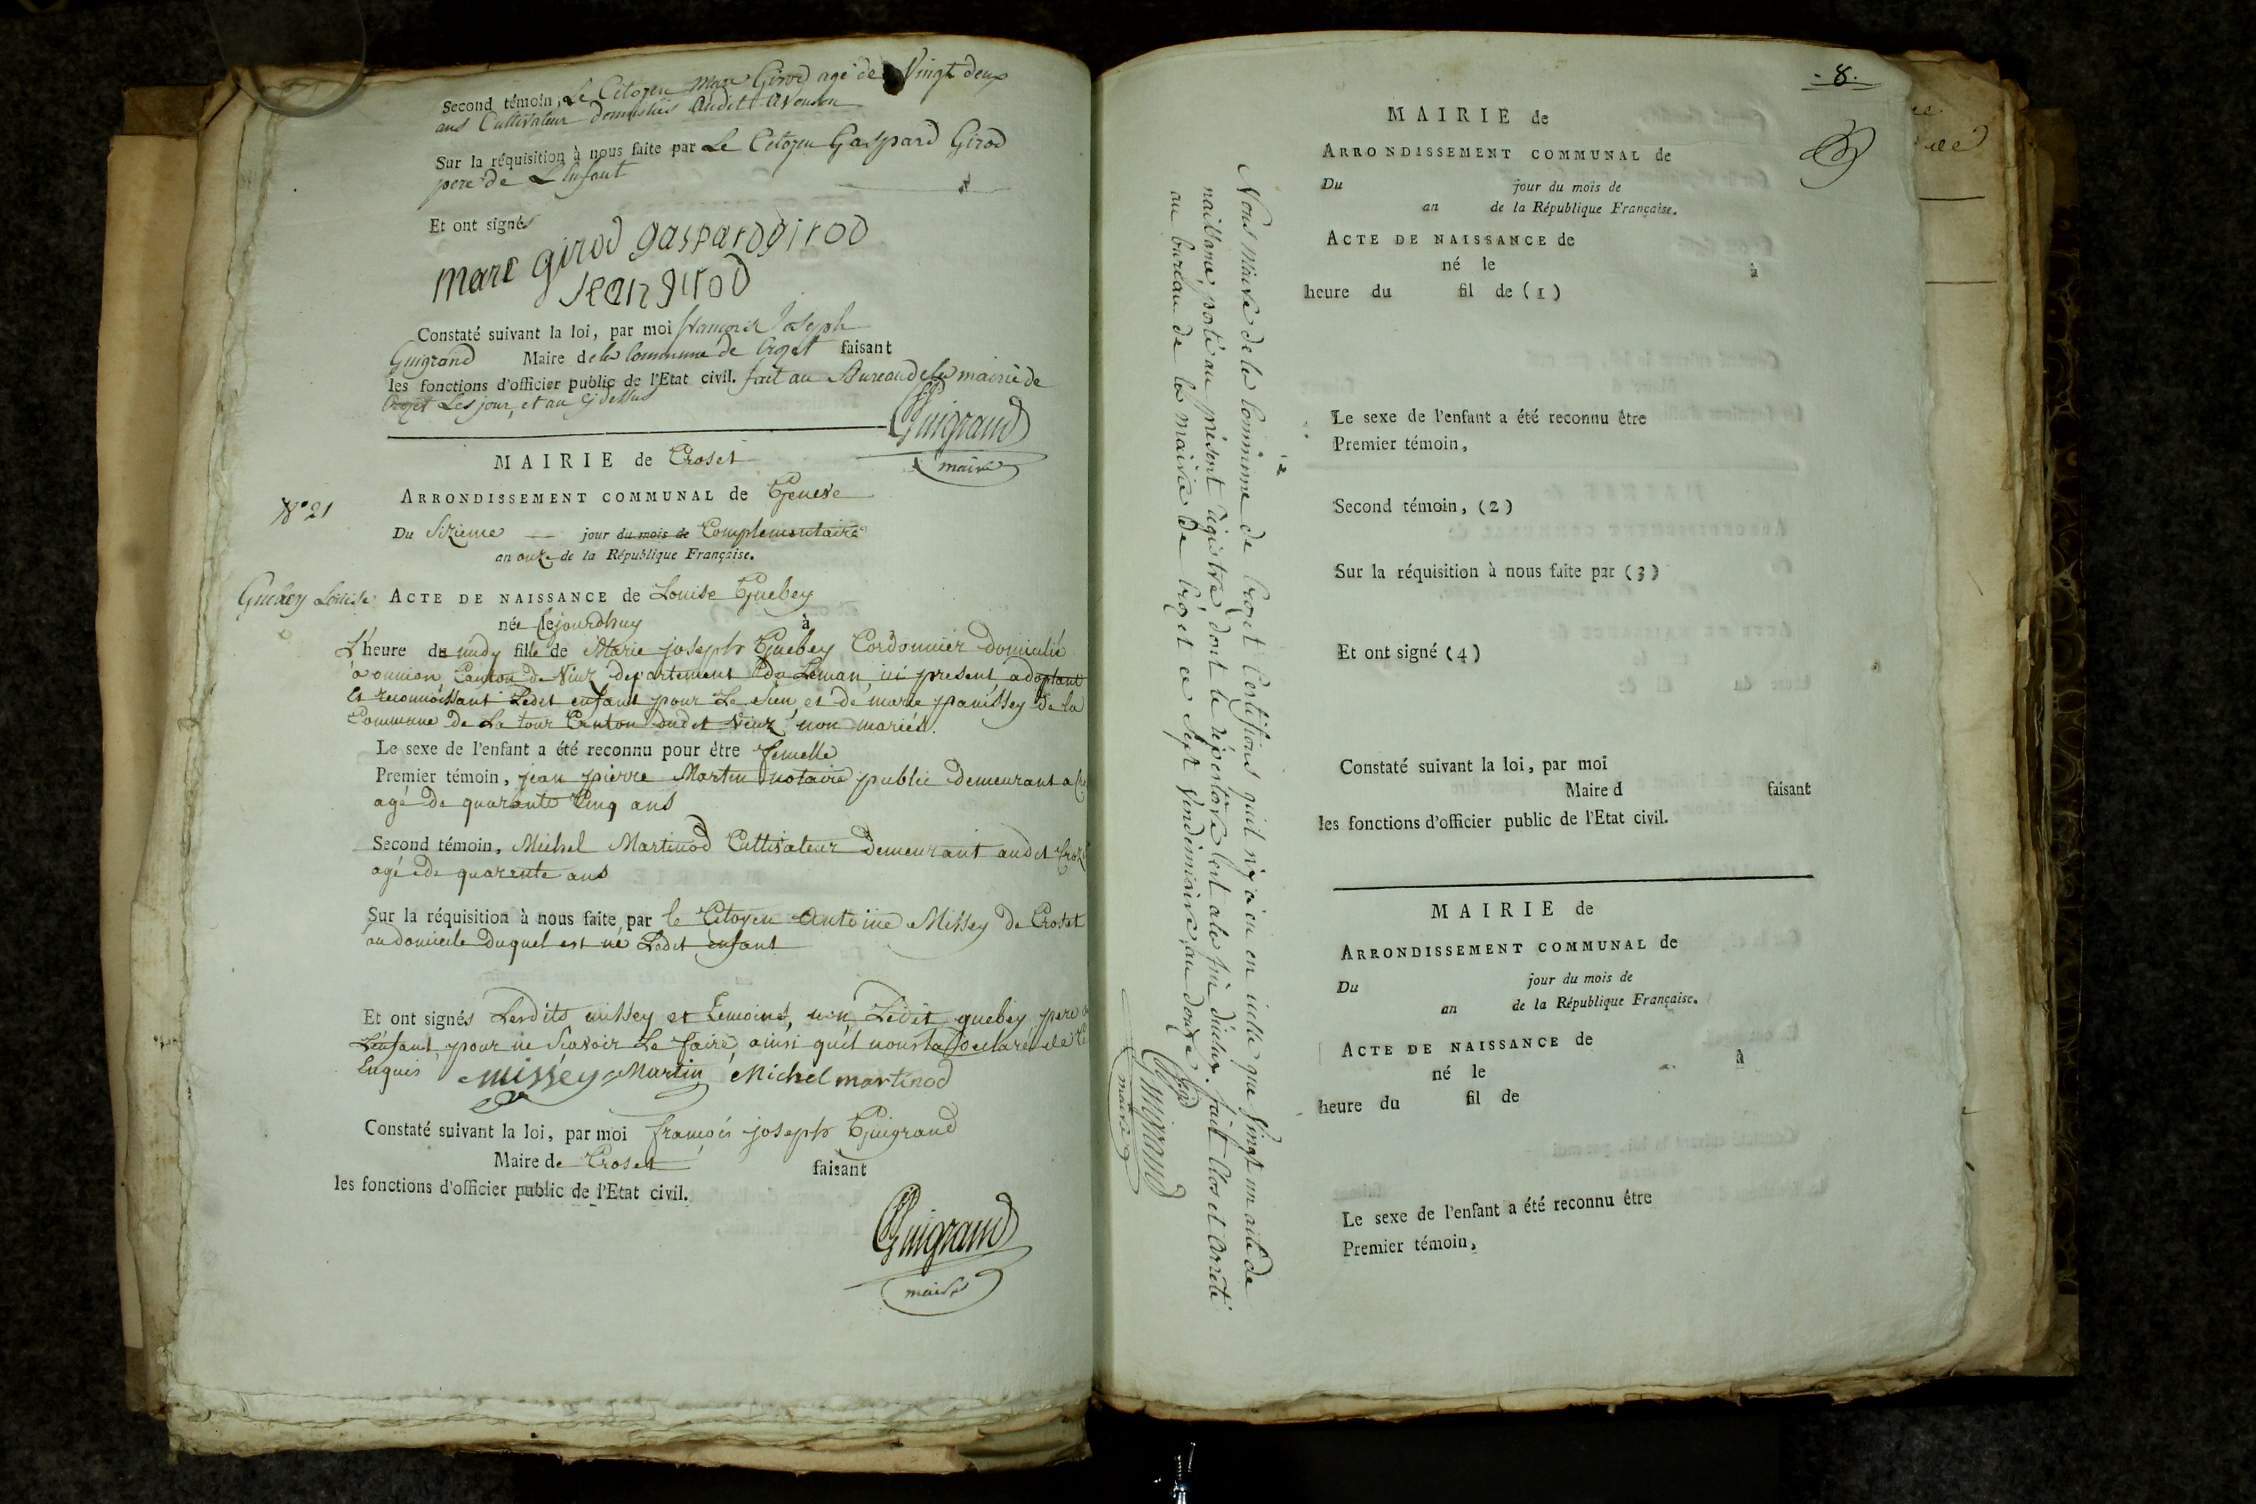 Second témoin, Le Citoyen Marc Girod agé de Vingt deux
ans Cultivateur domicilié audit avouson
Sur la réquisition à nous faite par Le Citoyen Gaspard Girod
pere de L'enfant
Et ont signés
marc girod gaspard girod
jean girod
Constaté suivant la loi, par moi françois Joseph
Guigrand Maire de la Commune de Crozet faisant
les fonctions d'officier public de l'Etat civil. fait au Bureau de la mairie de
Crozet Les jour, et an cy dessus
Guigrand
maire
MAIRIE de Croset
ARRONDISSEMENT COMMUNAL de Geneve
N° 21
Du Sizieme jour du mois de Complementaire
an onze de la République Française.
Guebey Louise
ACTE DE NAISSANCE de Louise Guebey
née le jourdhuy à
L'heure de midy fille de Marie joseph Guebey Cordonnier domicilié
à onnion Canton de Viuz departement du Léman, ici present, adoptant
et reconnoissant Ledit enfant pour Le sien, et de marie panissey de la
Commune de La tour Canton dudit Viuz non mariés.
Le sexe de l'enfant a été reconnu pour être femelle
Premier témoin, jean pierre Martin notaire public demeurant a
agé de quarante Cinq ans
Second témoin, Michel Martinod Cultivateur demeurant audit Croz
agé de quarente ans
Sur la réquisition à nous faite par le Citoyen Antoine Missey de Croset
au domicile duquel est né Ledit enfant
Et ont signés Lesdits missey et temoins, non Ledit guebey, pere de
L'enfant, pour ne Scavoir Le faire, ainsi quil nous la declaré de ce
Enquis missey Martin Michel martinod
Constaté suivant la loi, par moi françois joseph Guigrand
Maire de Croset faisant
les fonctions d'officier public de l'Etat civil.
Guigrand
maire
Nous Maire de la Commune de Crozet Certifions quil n'y a eu en icelle que Vingt un acte de
naissance, porté au présent régistre, dont le répertoire seul a la fin d'icelui. fait Clos et arrêté
au bureau de la mairie de Crozet ce Sept Vendémiaire, an douze
Guigrand
maire
8.
MAIRIE de
ARRONDISSEMENT COMMUNAL de
Du jour du mois de
an de la République Française.
ACTE DE NAISSANCE de
né le à
heure du fil de (1)
Le sexe de l'enfant a été reconnu être
Premier témoin,
Second témoin, (2)
Sur la réquisition à nous faite par (3)
Et ont signé (4)
Constaté suivant la loi, par moi
Maire d faisant
les fonctions d'officier public de l'Etat civil.
MAIRIE de
ARRONDISSEMENT COMMUNAL de
Du jour du mois de
an de la République Française.
ACTE DE NAISSANCE de
né le à
heure du fil de
Le sexe de l'enfant a été reconnu être
Premier témoin,